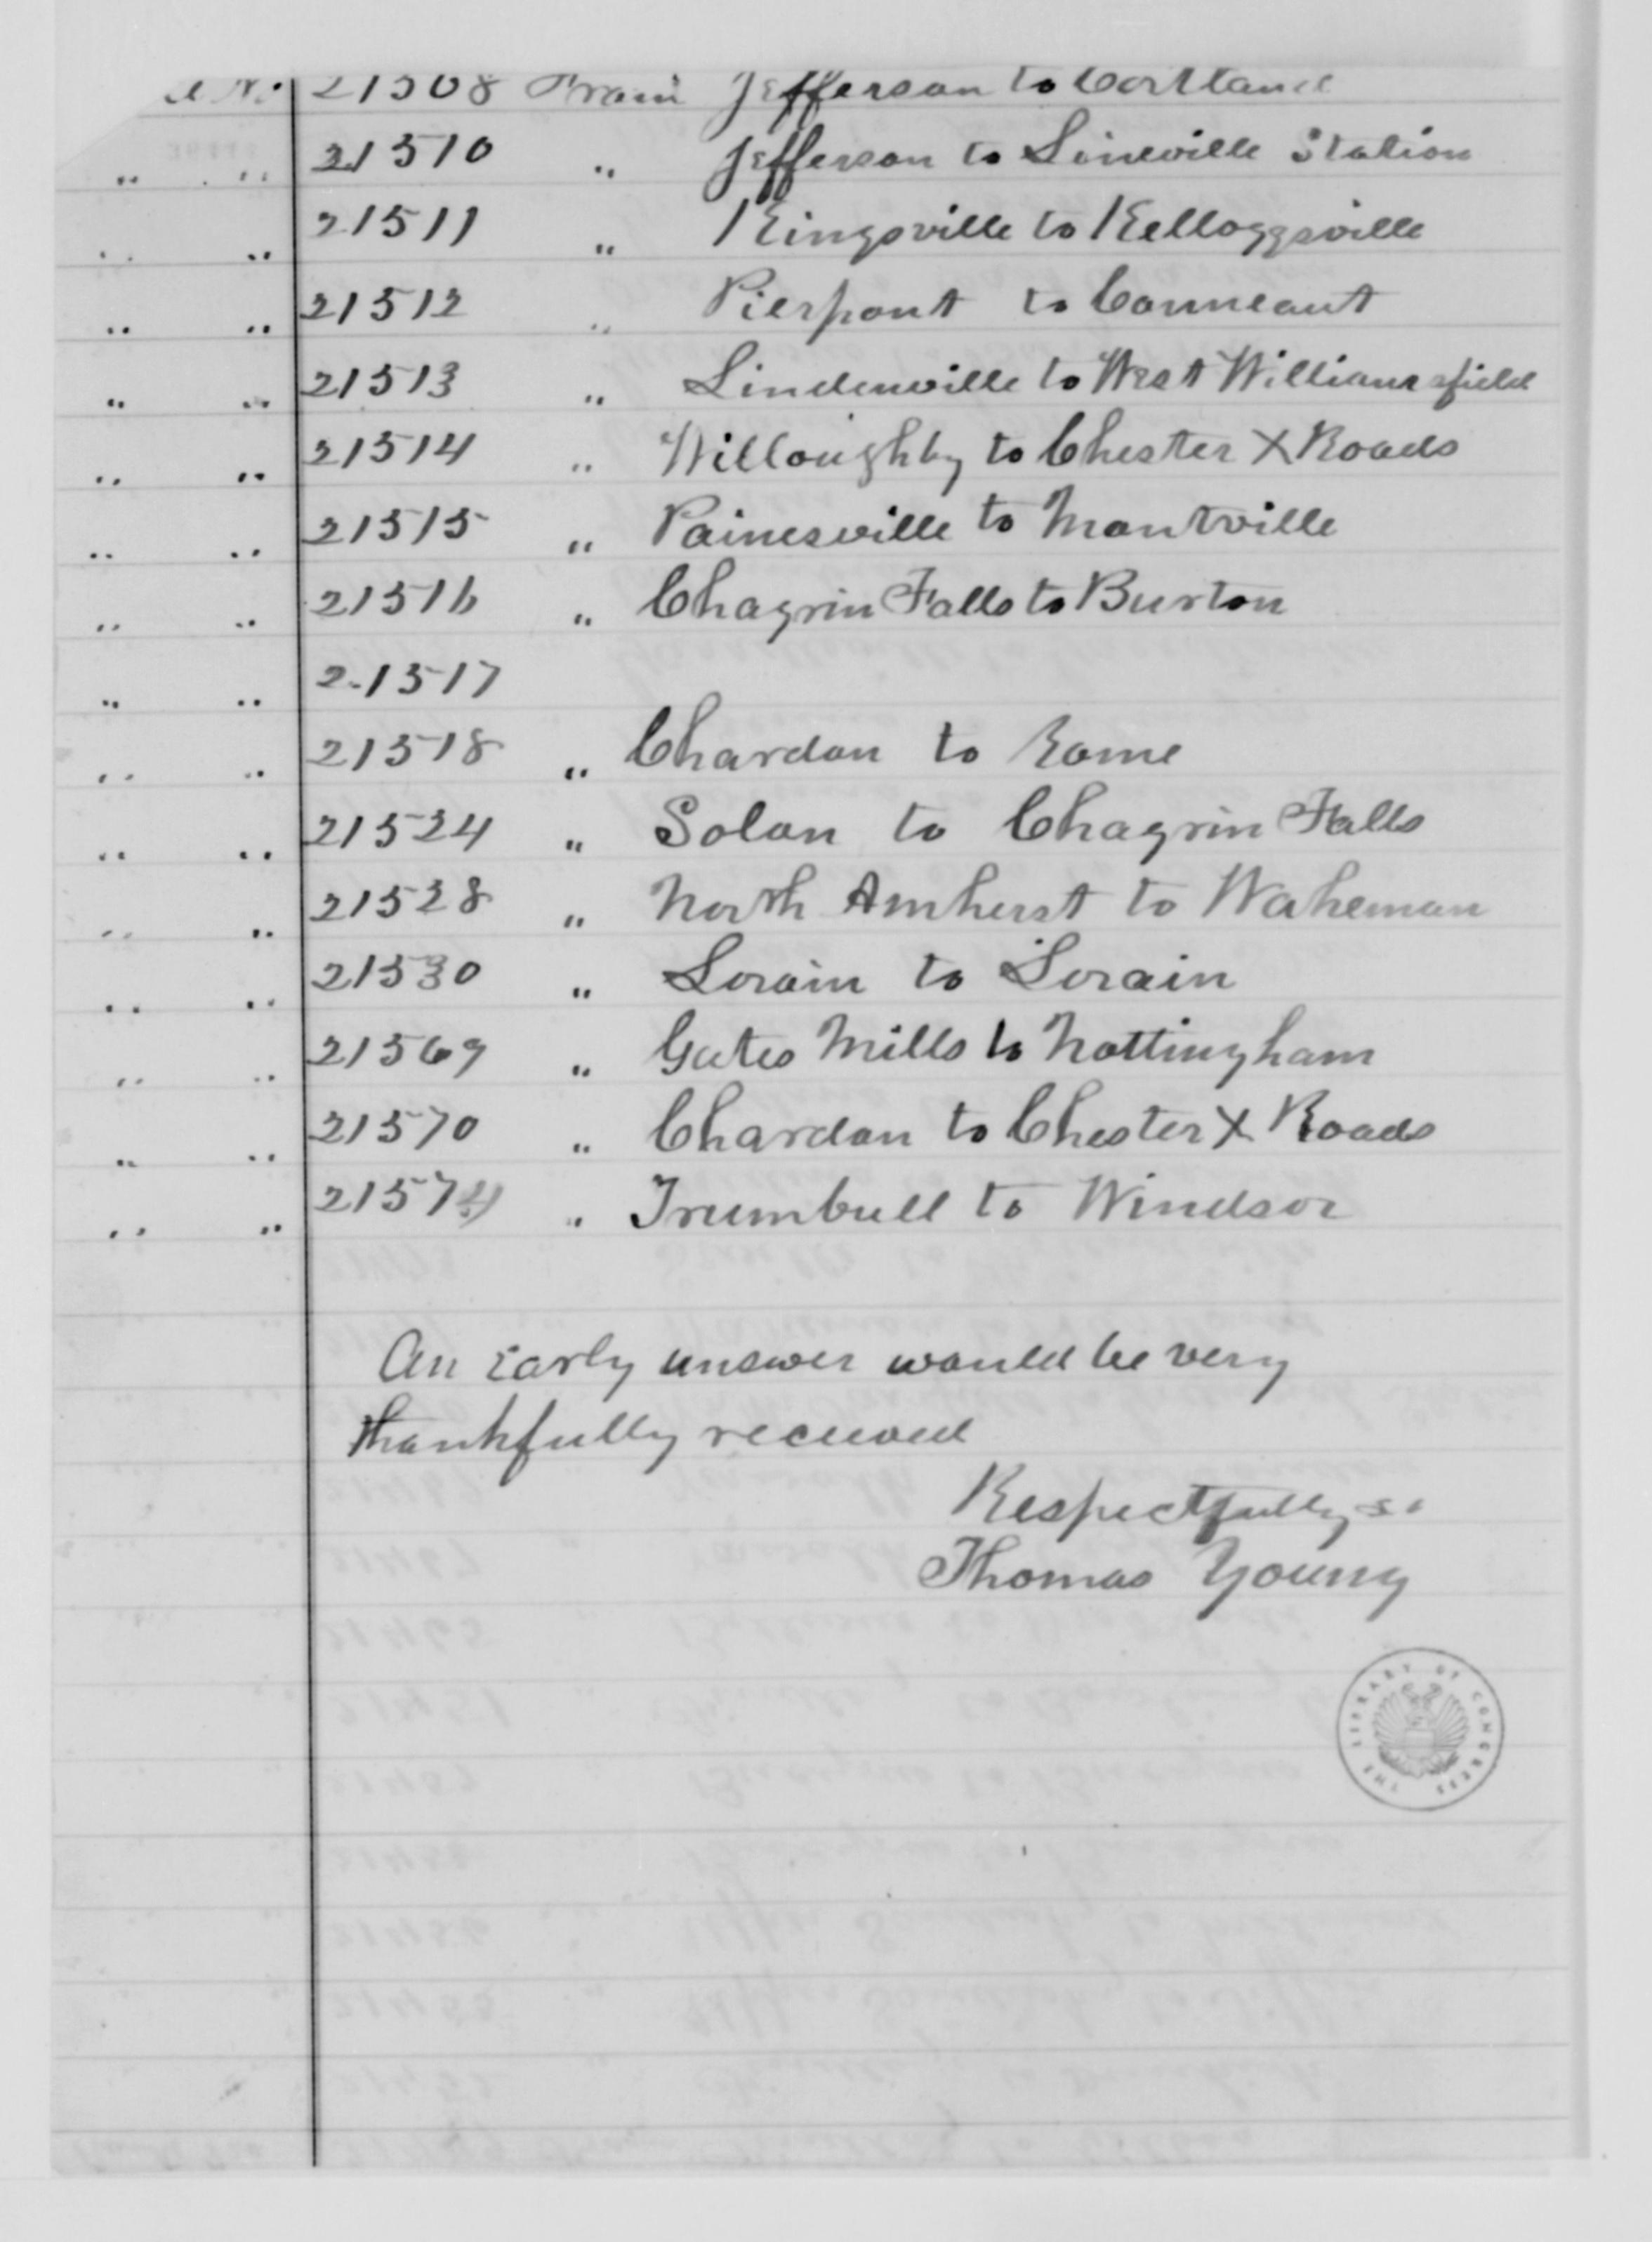 No. 21508 From Jefferson to Cortland
" " 21510 " Jefferson to Lineville Station
" " 21511 " Kingsville to Kelloggsville
" " 21512 " Pierpont to Conneaut
" " 21513 " Lindenville to West Williamsfield
" " 21514 " Willoughby to Chester X Roads
" " 21515 " Painesville to Montville
" " 21516 " Chagrin Falls to Burton
" " 21517
" " 21518 " Chardon to Rome
" " 21524 " Solon to Chagrin Falls
" " 21528 " North Amherst to Wakeman
" " 21530 " Lorain to Lorain
" " 21569 " Gates Mills to Nottingham
" " 21570 " Chardon to Chester X Roads
" " 21574 " Trumbull to Windsor
An Early answer would be very
thankfully received
Respectfully
Thomas Young
THE LIBRARY OF CONGRESS